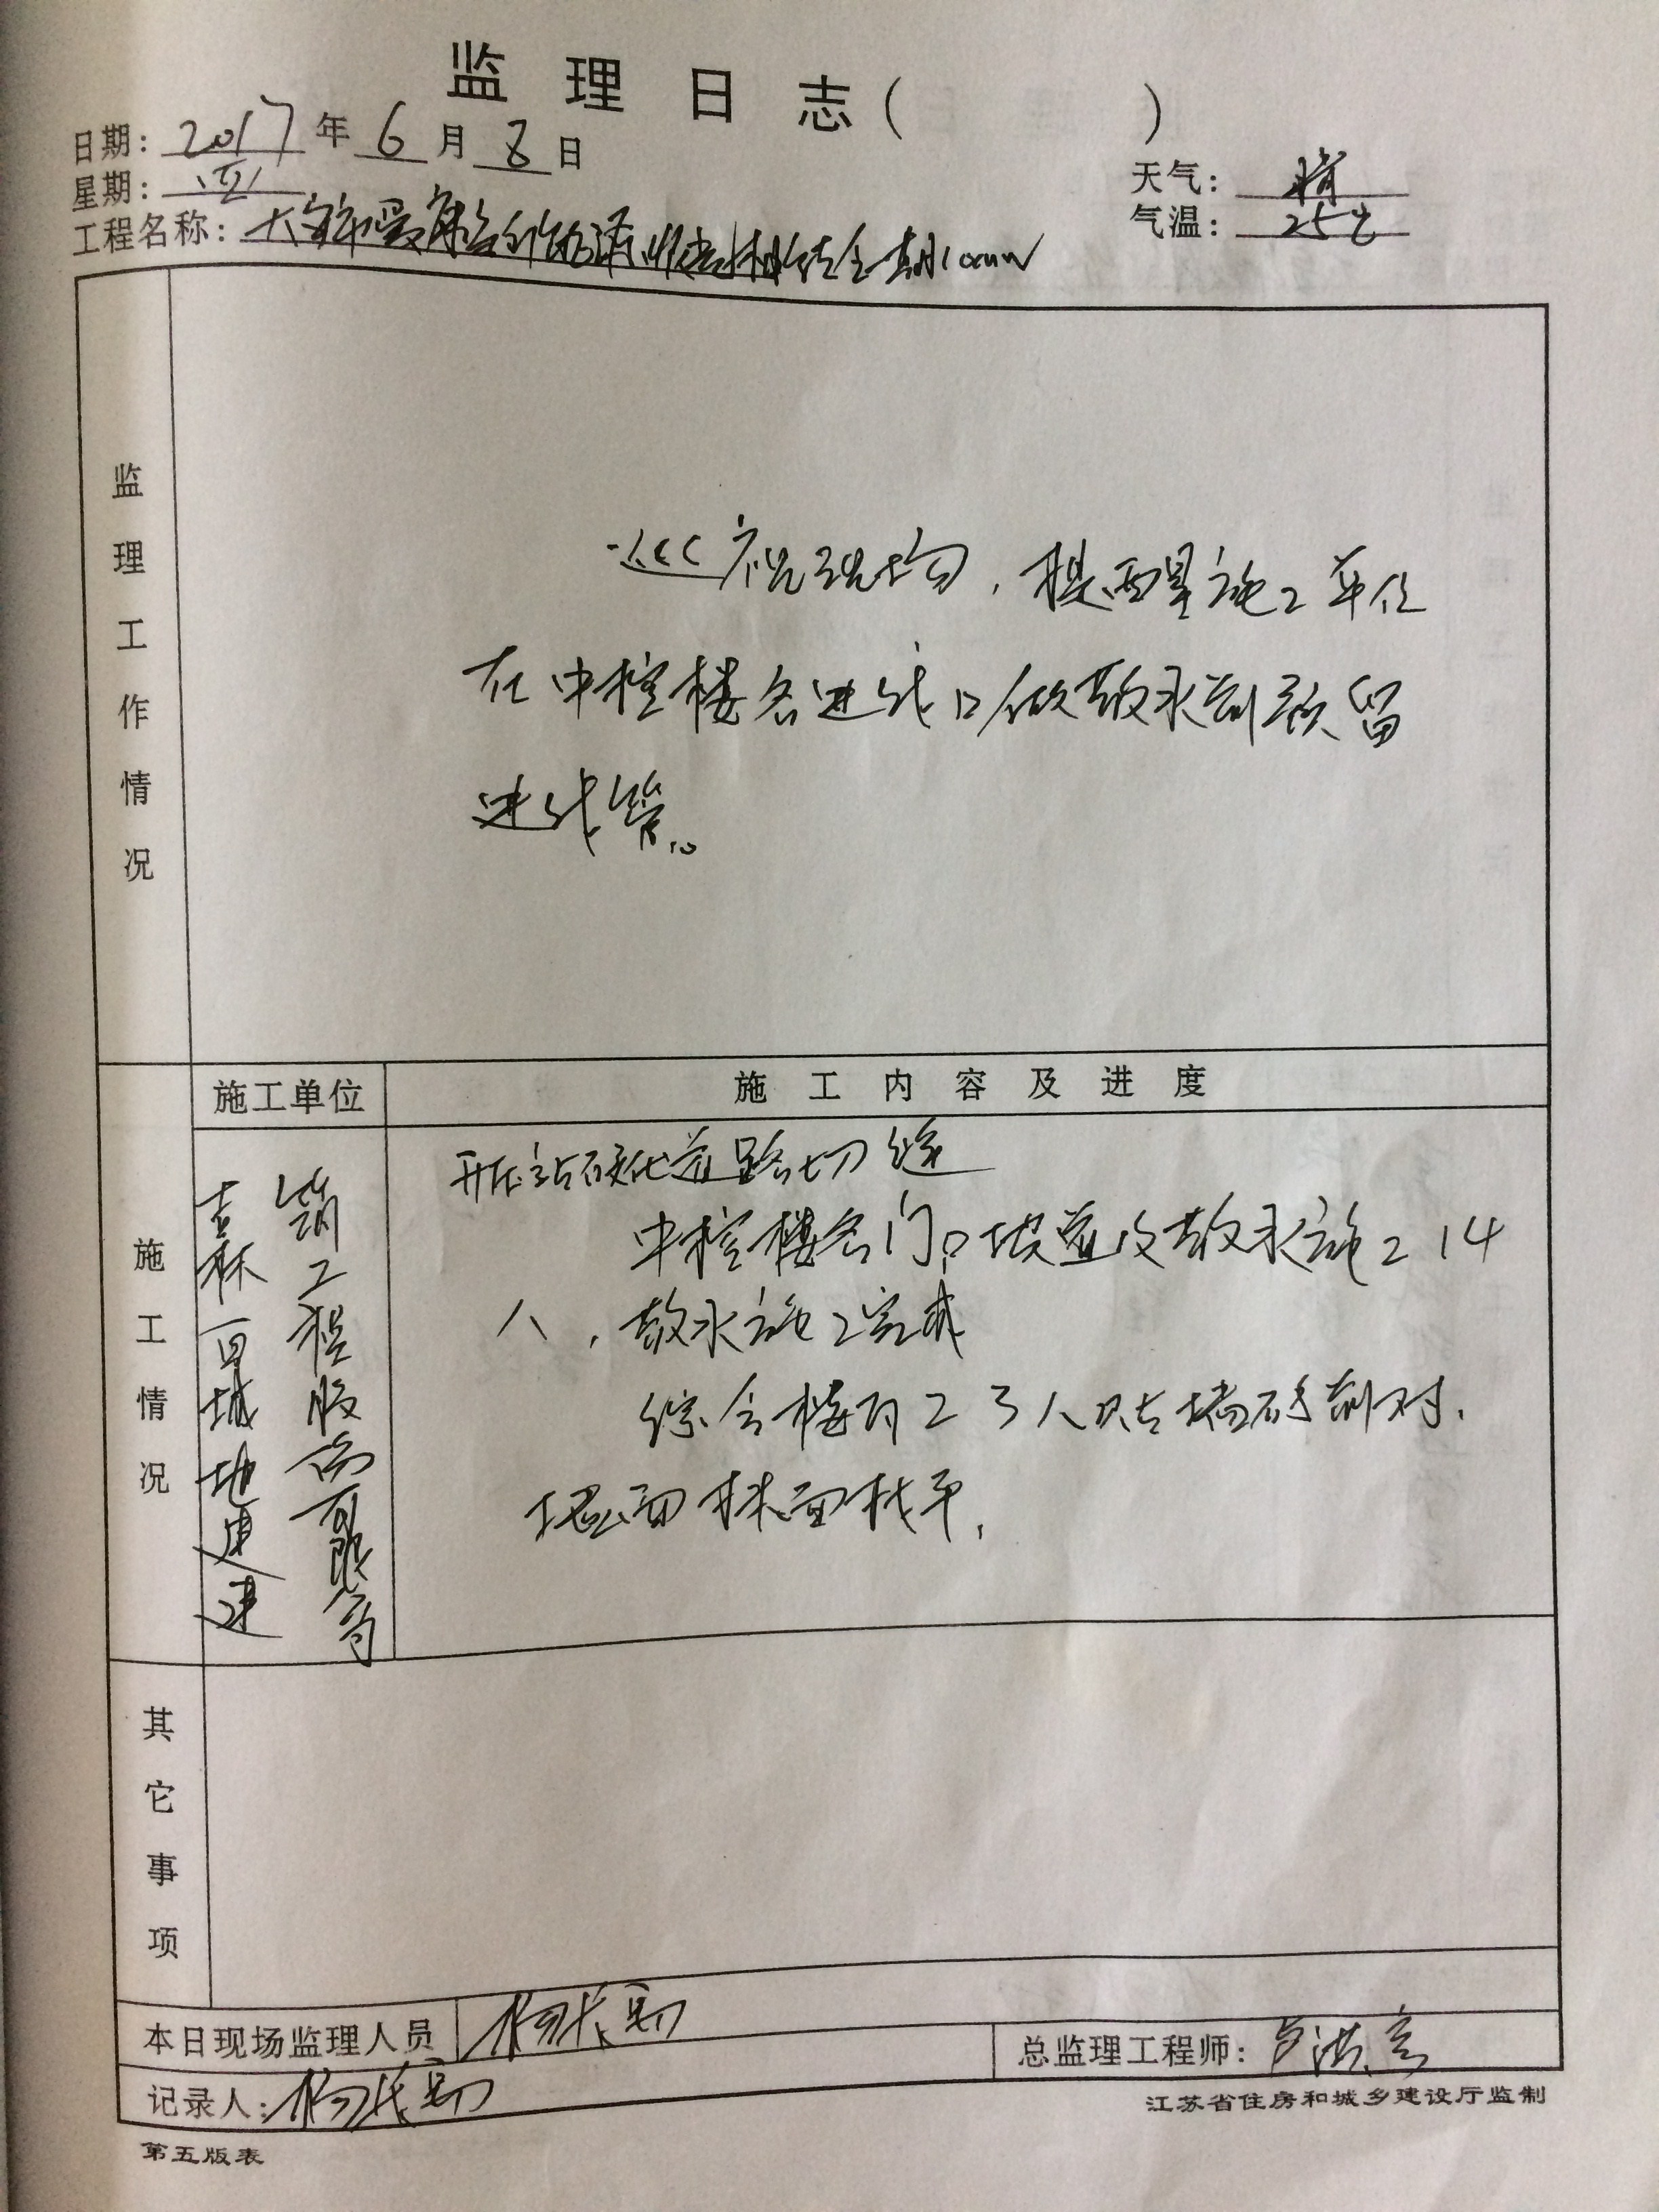 监理日志（ ）
日期：2017年6月8日
星期：四
天气：晴
气温：25℃
工程名称：大安市
监理工作情况
巡视现场，提醒施工单位
在中控楼各进线口做散水前预留
进线管。
施工情况
施工单位
施工内容及进度
吉林百城地建建
筑工程股份有限公司
开压站硬化道路切缝
中控楼各门口坡道及散水施工14
人，散水施工完成
综合楼内工3人贴墙砖
地面抹面找平，
其它事项
本日现场监理人员
总监理工程师：卢洪
记录人：
江苏省住房和城乡建设厅监制
第五版表